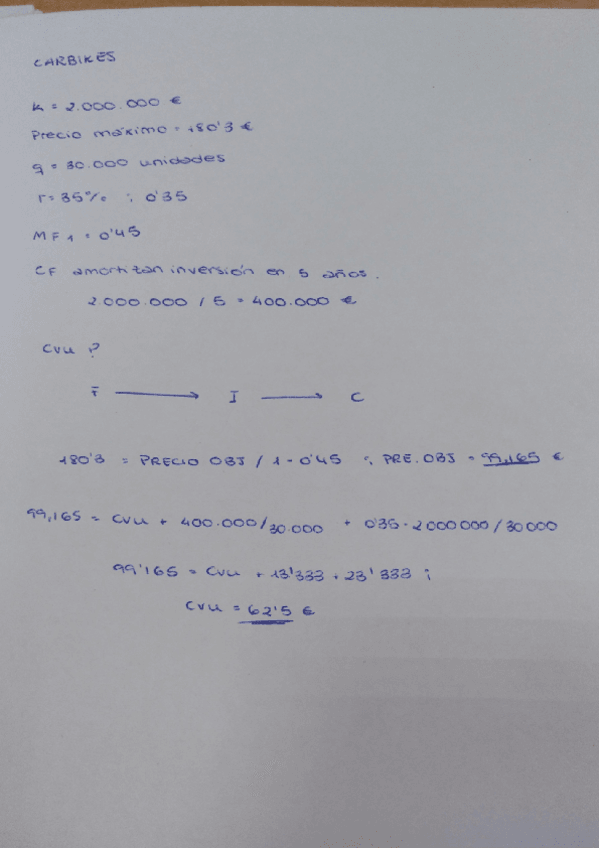 CARBIKES
K = 2.000.000 €
Precio máximo = 180'3 €
q = 30.000 unidades
r = 35% ; 0'35
MF1 = 0'45
CF amortizan inversión en 5 años.
2.000.000 / 5 = 400.000 €
CVU ?
F → I → C
180'3 = PRECIO OBJ / 1 - 0'45 ; PRE. OBJ = 99,165 €
99,165 = CVU + 400.000/30.000 + 0'35 · 2000000/30000
99'165 = CVU + 13'333 + 23'333 ;
CVU = 62'5 €